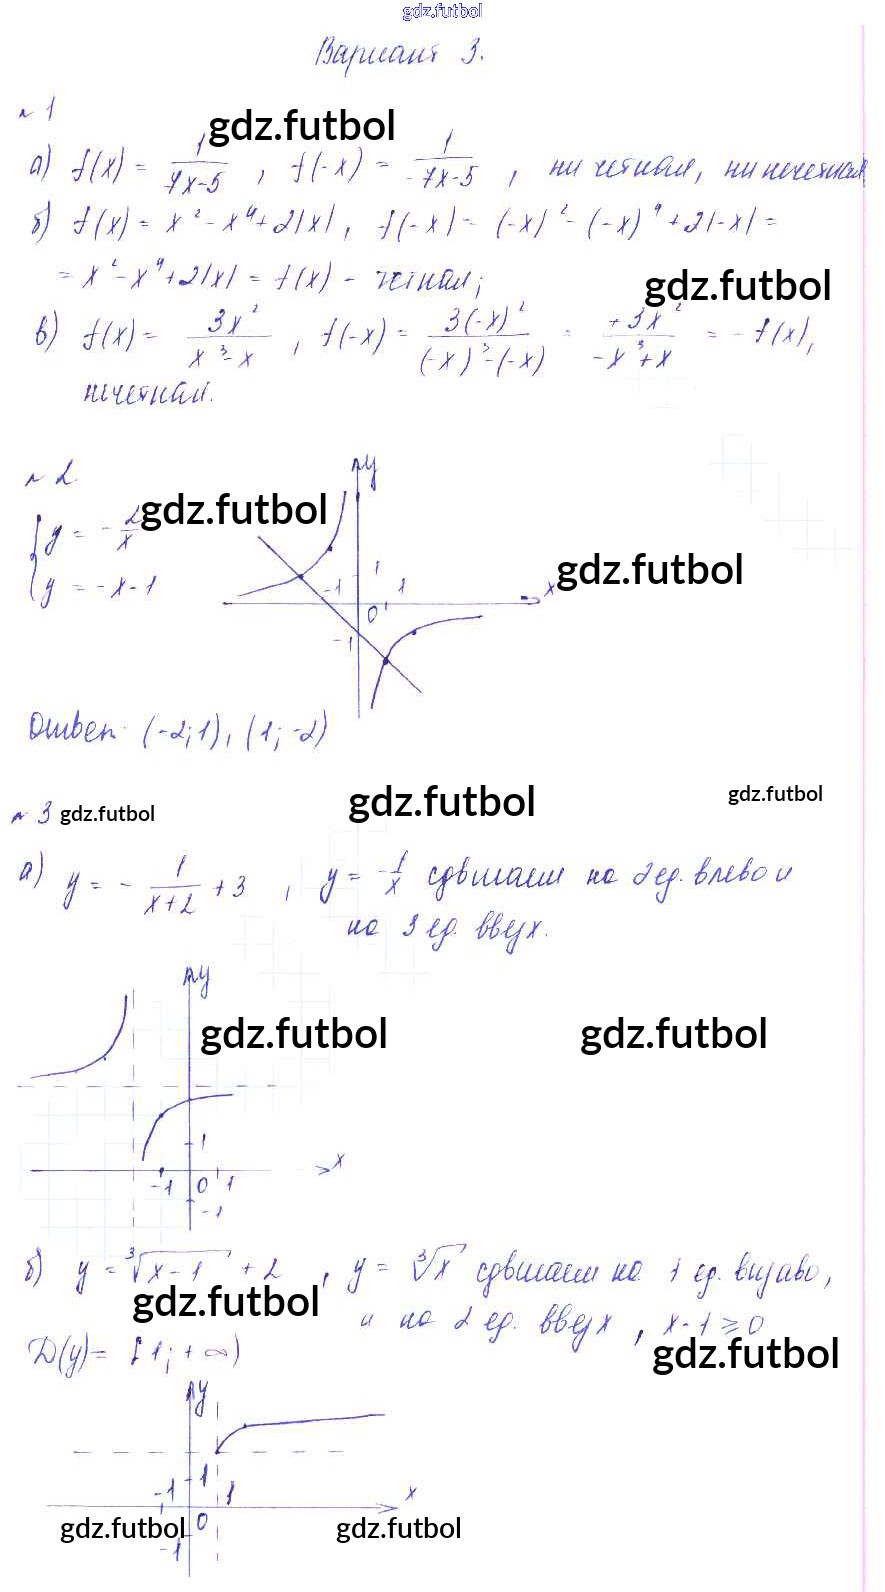 gdz.futbol
Вариант 3.
№ 1
gdz.futbol
а) f(x) = 1/(7x-5), f(-x) = 1/(-7x-5), ни четная, ни нечетная
б) f(x) = x² - x⁴ + 2|x|, f(-x) = (-x)² - (-x)⁴ + 2|-x| =
= x² - x⁴ + 2|x| = f(x) - четная;
gdz.futbol
в) f(x) = 3x²/(x³ - x), f(-x) = 3(-x)²/((-x)³ - (-x)) = +3x²/(-x³ + x) = - f(x),
нечетная.
№ 2
y
gdz.futbol
{ y = - 2/x
y = -x - 1
gdz.futbol
-1 1 1 x
0
-1
Ответ (-2; 1), (1; -2)
№ 3 gdz.futbol gdz.futbol gdz.futbol
а) y = - 1/(x+2) + 3, y = -1/x сдвигаем на 2 ед. влево и
на 3 ед. вверх.
y
gdz.futbol gdz.futbol
1
x
-1 0 1
-1
б) y = ³√(x-1) + 2, y = ³√x сдвигаем на 1 ед. вправо,
gdz.futbol
и на 2 ед. вверх, x-1 ≥ 0
D(y) = [1; +∞)
gdz.futbol
y
-1 1 1 x
gdz.futbol 0 gdz.futbol
-1